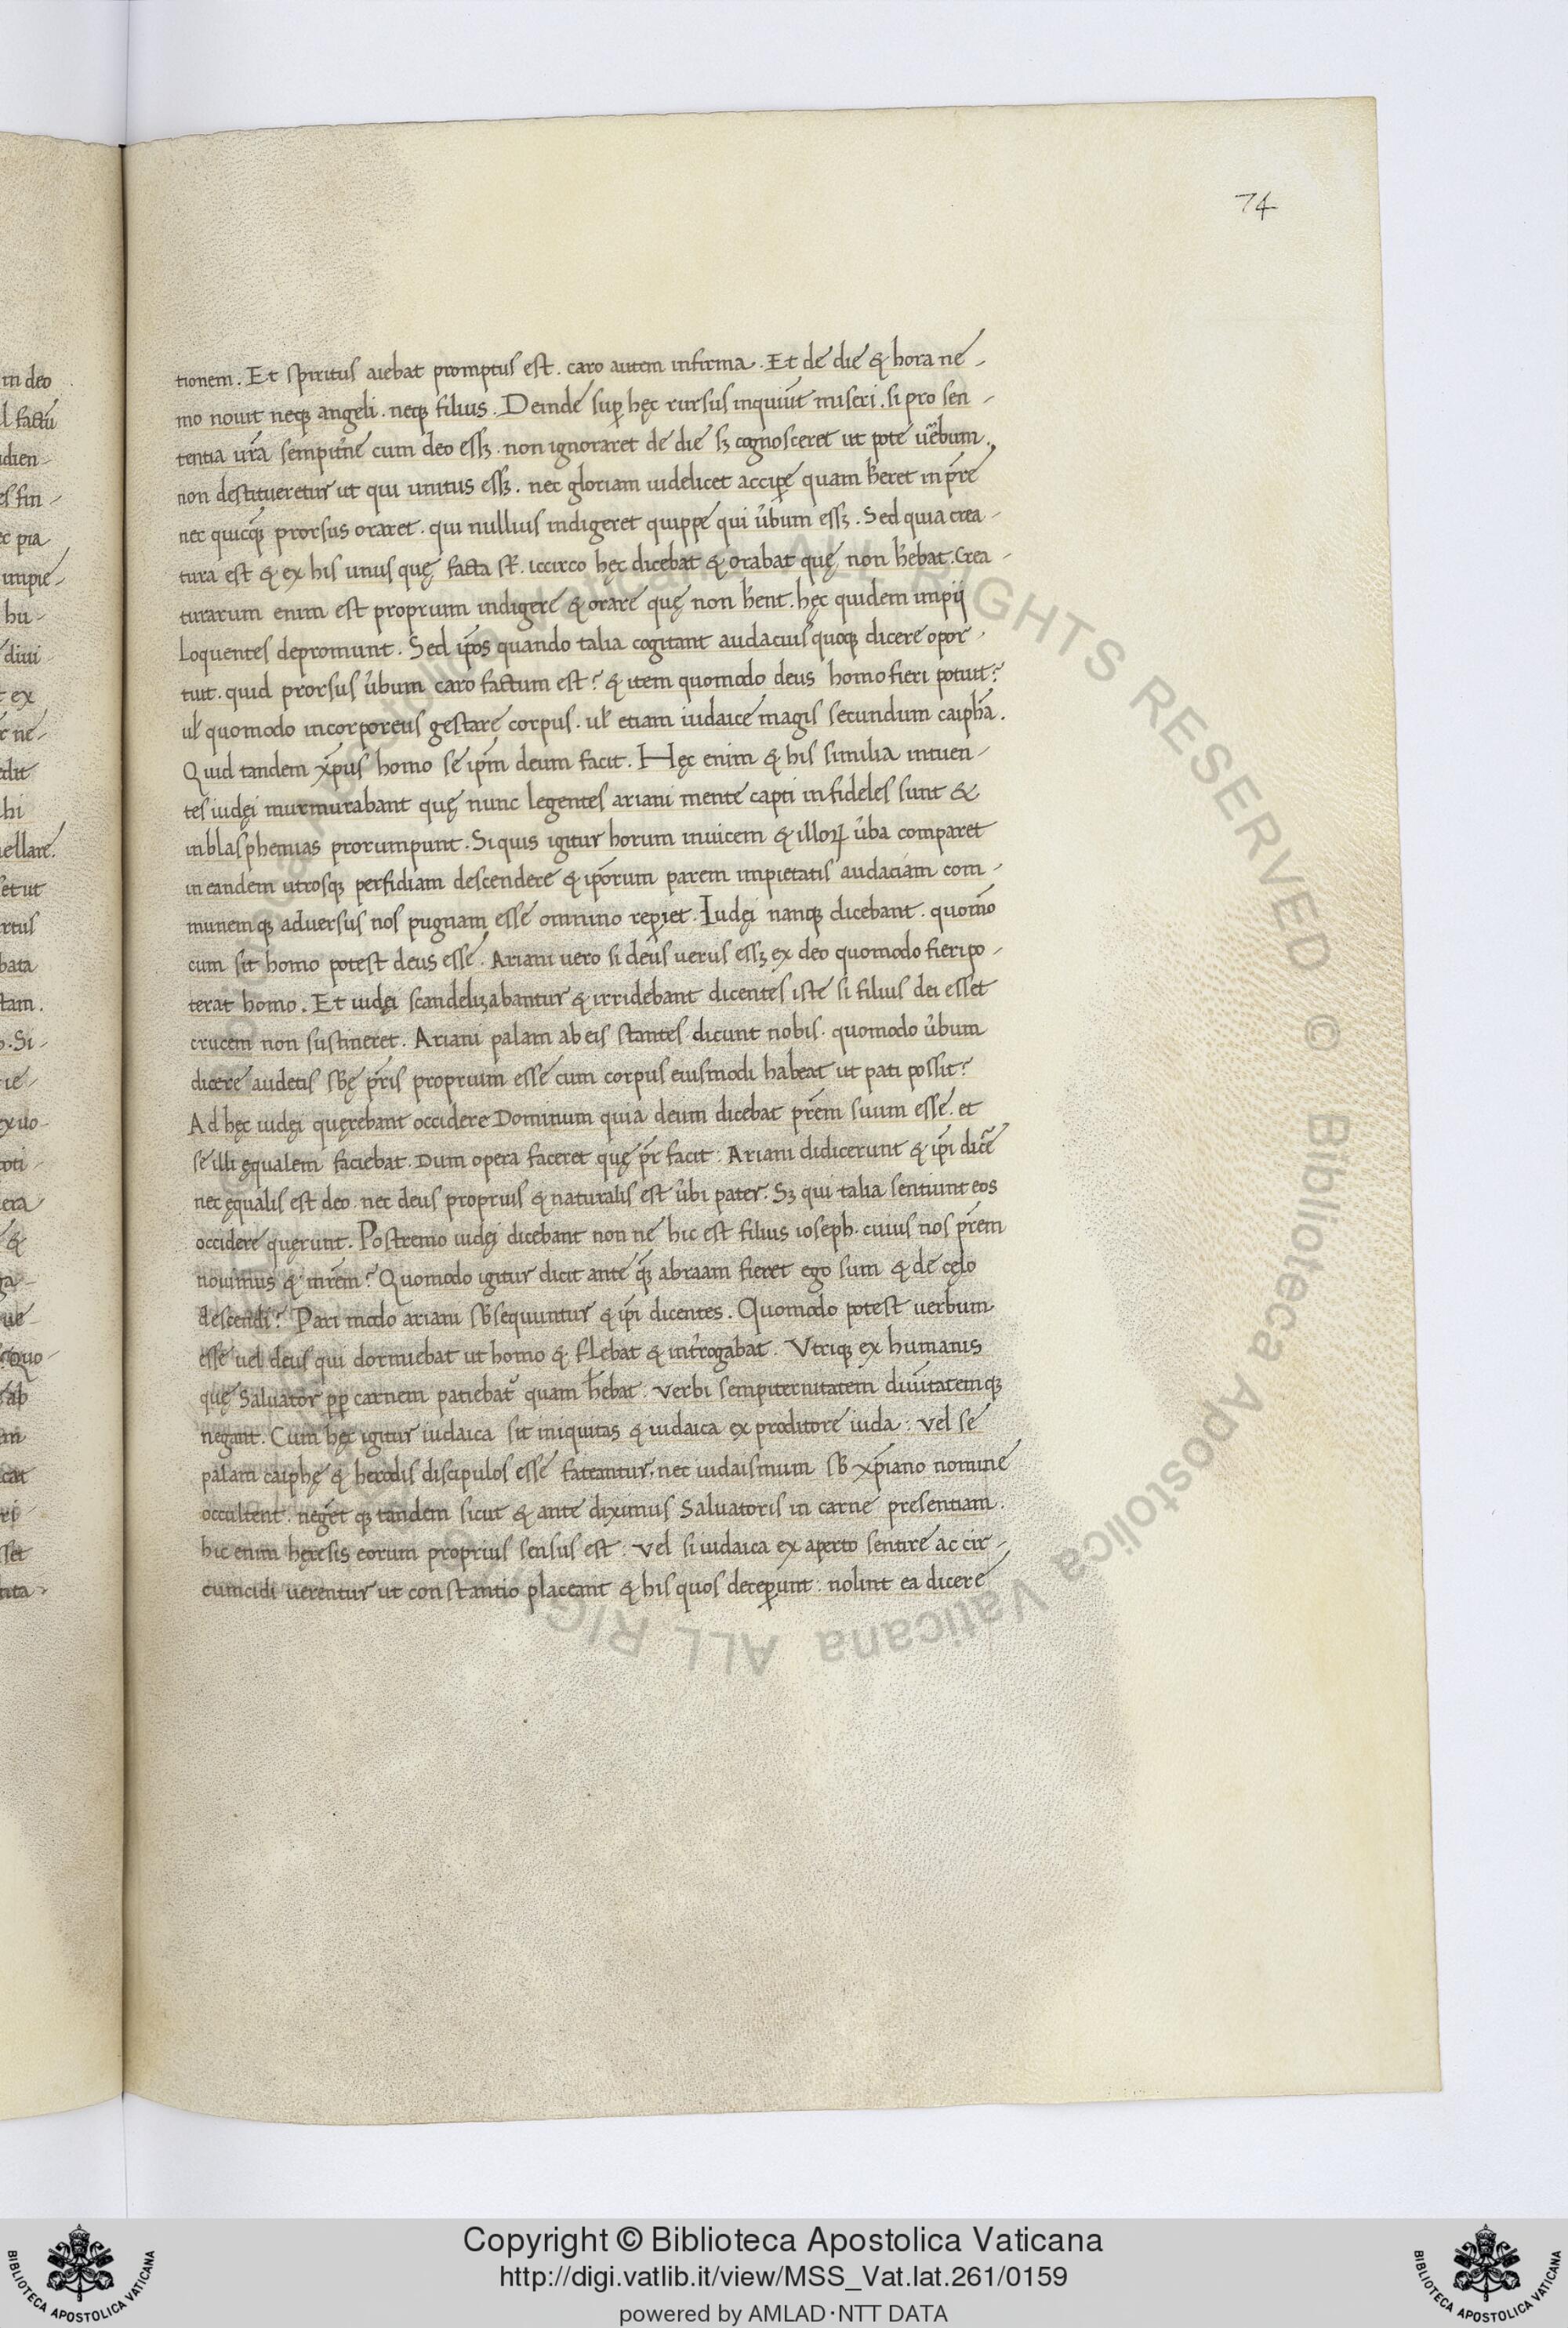 74
tionem. Et spiritus aiebat promptus est. caro autem infirma. Et de die & hora ne-
mo nouit neq; angeli. neq; filius. Deinde sup̱ hęc rursus inquiūt miseri. si pro sen-
tentia ur̄a sempit̾ne cum deo ess&. non ignoraret de die s& cognosceret ut pote uerbum.
non destitueretur ut qui unitus ess&. nec gloriam uidelicet accip̱e quam h̄eret in pr̄e
nec quicq̄; prorsus oraret. qui nullius indigeret quippe qui u̾bum ess&. Sed quia crea-
tura est & ex his unus quę facta st̄. iccirco hęc dicebat & orabat quę non h̄ebat. Crea-
turarum enim est proprium indigere & orare quę non h̄ent. hęc quidem impij
Loquentes depromunt. Sed ip̄os quando talia cogitant audacius quoq; dicere opor-
tuit. quid prorsus u̾bum caro factum est? & item quomodo deus homo fieri potuit?
ul̄ quomodo incorporeus gestare corpus. ul̄ etiam iudaice magis secundum caiphā.
Quid tandem xp̄us homo se ip̄m deum facit. Hęc enim & his similia intuen-
tes iudęi murmurabant quę nunc legentes ariani mente capti infideles sunt &
in blasphemias prorumpunt. Si quis igitur horum inuicem & illoꝝ u̾ba comparet
in eandem utrosq; perfidiam descendere & ip̄orum parem impietatis audaciam com-
munemq; aduersus nos pugnam esse omnino rep̱iet. Iudęi nanq; dicebant. quom̄o
cum sit homo potest deus esse. Ariani uero si deus uerus ess& ex deo quomodo fieri po-
terat homo. Et iudęi scandelizabantur & irridebant dicentes iste si filius dei esset
crucem non sustineret. Ariani palam ab eis stantes dicunt nobis. quomodo u̾bum
dicere audetis sb̄ę pr̄is proprium esse cum corpus eiusmodi habeat ut pati possit?
Ad hęc iudęi quęrebant occidere Dominum quia deum dicebat pr̄em suum esse. et
se illi ęqualem faciebat. Dum opera faceret quę pr̄ facit: Ariani didicerunt & ip̄i dic̄e
nec ęqualis est deo. nec deus proprius & naturalis est u̾bi pater. S& qui talia sentiunt eos
occidere quęrunt. Postremo iudęi dicebant non ne hic est filius ioseph. cuius nos pr̄em
nouimus & mr̄em? Quomodo igitur dicit ante q̄; abraam fieret ego sum & de cęlo
descendi? Pari modo ariani sb̄sequuntur & ip̄i dicentes. Quomodo potest uerbum
esse uel deus qui dormiebat ut homo & flebat & int̾rogabat. Vtriq; ex humanis
quę Saluator pp̱ carnem patiebat̾ quam h̄ebat: verbi sempiternitatem diuītatemq;
negant. Cum hęc igitur iudaica sit iniquitas & iudaica ex proditore iuda: vel se
palam caiphę & herodis discipulos esse fateantur. nec iudaismum sb̄ xp̄iano nomine
occultent. neget q; tandem sicut & ante diximus Saluatoris in carne presentiam.
hic enim hęresis eorum proprius sensus est: vel si iudaica ex aperto sentire ac cir-
cumcidi uerentur ut constantio placeant & his quos decep̱unt: nolint ea dicere
in deo
l factū
dien-
es fin-
ec pia
impie-
hu-
diui
ex
ne-
edit
hi
uellare.
et ut
rtus
bata
tam.
Si-
ie-
ex uo-
poti-
era
&
ga-
ue-
Quo-
ab
m
cat
ri-
sset
tita-
Biblioteca Apostolica Vaticana ALL RIGHTS RESERVED ©
Copyright © Biblioteca Apostolica Vaticana
http://digi.vatlib.it/view/MSS_Vat.lat.261/0159
powered by AMLAD·NTT DATA
BIBLIOTECA APOSTOLICA VATICANA
BIBLIOTECA APOSTOLICA VATICANA